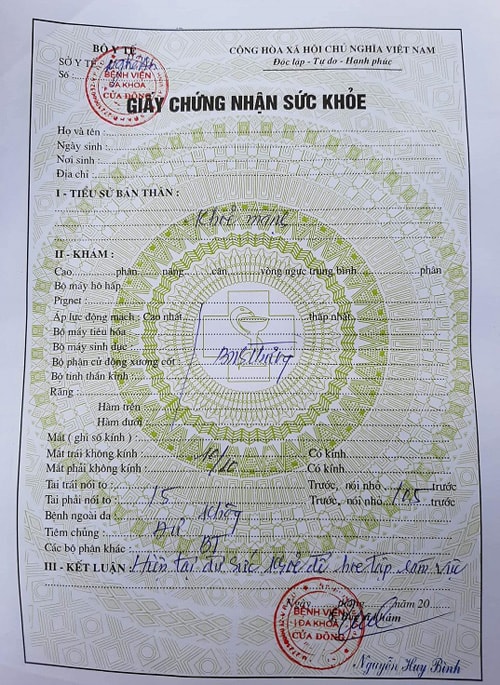 BỘ Y TẾ
CỘNG HÒA XÃ HỘI CHỦ NGHĨA VIỆT NAM
SỞ Y TẾ Nghệ An
Độc lập - Tự do - Hạnh phúc
Số
BỆNH VIỆN
ĐA KHOA
CỬA ĐÔNG
GIẤY CHỨNG NHẬN SỨC KHỎE
Họ và tên :
Ngày sinh :
Nơi sinh :
Địa chỉ :
I - TIỂU SỬ BẢN THÂN :
Khoẻ mạng
II - KHÁM :
Cao phân nặng cân vòng ngực trung bình phân
Bộ máy hô hấp
Pignet :
Áp lực động mạch : Cao nhất thấp nhất
Bộ máy tiêu hóa
Bộ máy sinh dục :
Bộ phận cử động xương cốt
Bộ tinh thần kinh :
Răng :
Hàm trên
Hàm dưới
Mắt ( ghi số kính ) :
Mắt trái không kính : 10/10 Có kính
Mắt phải không kính : Có kính
Tai trái nói to : Trước, nói nhỏ trước
Tai phải nói to : 15 Trước, nói nhỏ 105 trước
Bệnh ngoài da : không
Tiêm chủng : Đủ
Các bộ phận khác : BT
III - KẾT LUẬN : Hiện tại đủ sức khoẻ để học tập làm việc
Ngày tháng năm 20
BỆNH VIỆN
ĐA KHOA
CỬA ĐÔNG
Nguyễn Huy Bình